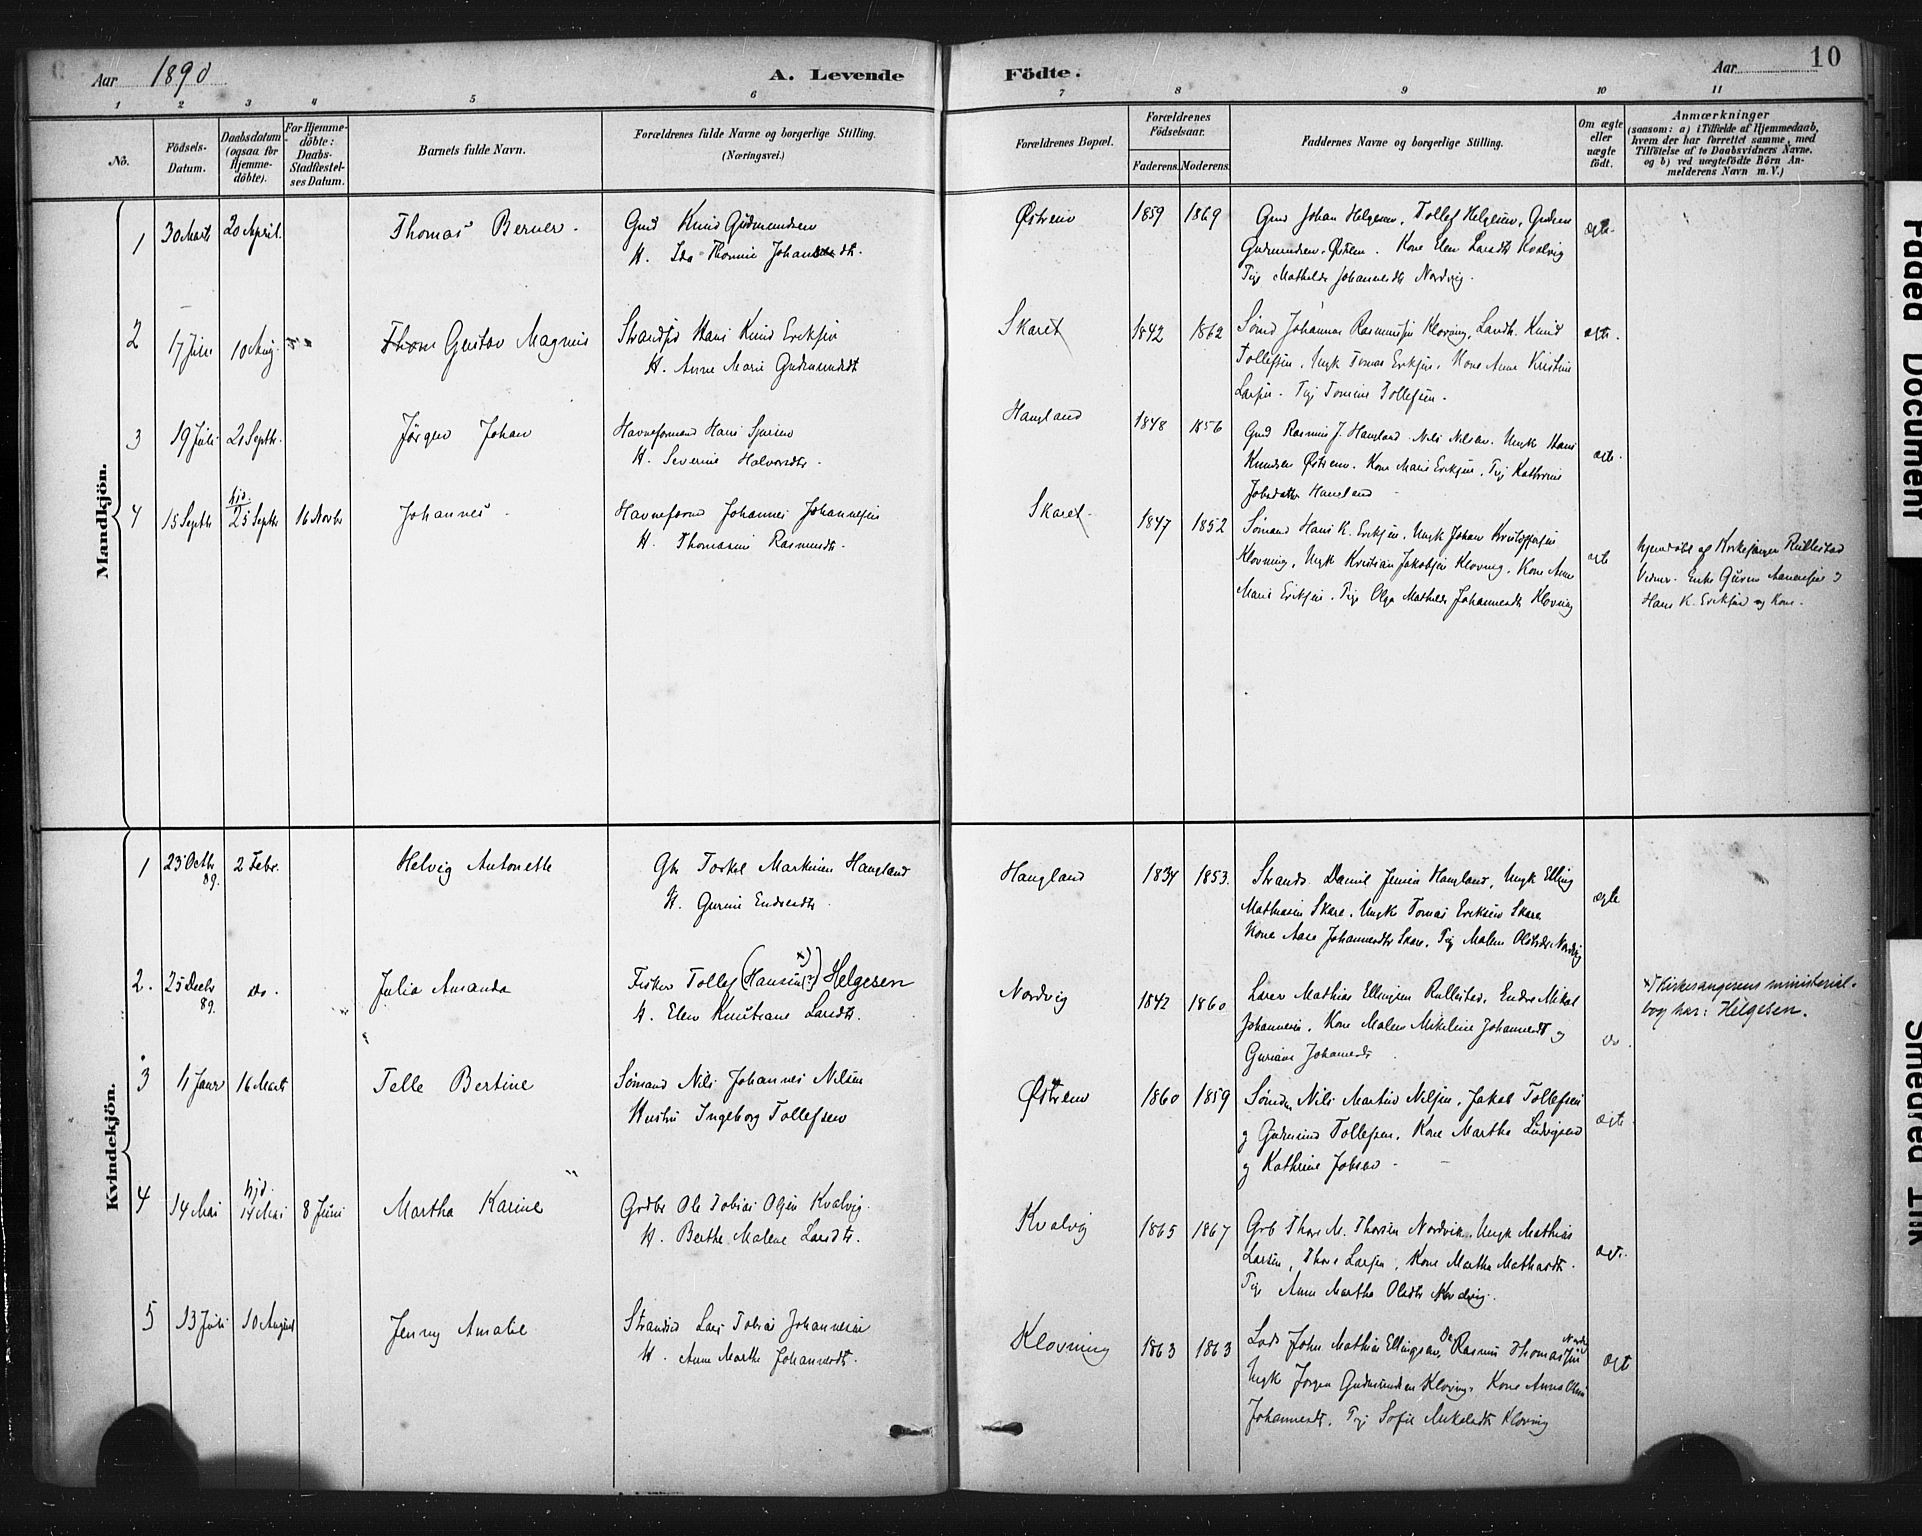 Aar 1890
A. Levende
Födte.
Aar
10
1 2 3 4 5 6 7 8 9 10 11
No.
Födsels-Datum.
Daabsdatum (ogsaa for Hjemme-döbte).
For Hjemme-döbte: Daabs-Stadfestel-ses Datum.
Barnets fulde Navn.
Forældrenes fulde Navne og borgerlige Stilling.
(Næringsvei.)
Forældrenes Bopæl.
Forældrenes Födselsaar.
Faderens. Moderens.
Faddernes Navne og borgerlige Stilling.
Om ægte eller uægte födt.
Anmærkninger
(saasom: a) i Tilfælde af Hjemmedaab,
hvem der har forrettet samme, med
Tilföielse af to Daabsvidners Navne,
og b) ved uægtefödte Börn An-
melderens Navn m. V.)
Mandkjön.
1 30 Marts 20 April. Thomas Berner. Gmd Knud Gudmundsen
H. Ida Thomine Johannesdt.
Østrem 1859 1869 Gmd Johan Helgesen, Tollef Helgesen, Gudmun
Gudmundsen Østrem. Kone Elen Larsdt Kvalvig
Pige Mathilde Johannesdt Nordvig.
ægte
2 17 Juni 10 Aug. Thom Gustav Magnus Strandsid Hans Knud Eriksen
H. Anne Marie Gudmundsdt
Skaret 1842 1862 Sømd Johannes Rasmussen Klovning, Landh. Knud
Tollefsen, Ungk Tomas Eriksen, Kone Anne Kristine
Larsen. Pige Tomine Tollefsen.
ægte.
3 19 Juli 21 Septbr. Jørgen Johan Havneformand Hans
H. Severine Halvorsdtr.
Haugland 1848 1856 Gmd Rasmus J. Haugland. Nils Nilsen. Ungk Hans
Knudsen Østrem. Kone Marie Eriksen, Pige Kathrine
Jobsdatter Haugland
ægte.
4 15 Septbr hjd. 25 Septbr 16 Novbr Johannes. Havneformd Johannes Johannesen
H. Thomasine Rasmusdtr.
Skaret 1847 1852 Sømand Hans K. Eriksen, Ungk Johan Kristoffersen
Klovning, Ungk Kristian Jakobsen Klovning, Kone Anne
Marie Eriksen. Pige Olga Mathilde Johannesdt Klovning
ægte
hjemdøbt af Kirkesanger Rullestad
Vidner. Enke Guren Aanensen og
Hans K. Eriksen og Kone.
Kvindekjön.
1 23 Octbr 89. 2 Febr. Helvig Antonette Gbr Torkel Markusen Haugland
H. Gurine Endresdtr.
Haugland 1834 1853. Strands. Daniel Jensen Haugland, Ungk Elling
Mathiasen Skare, Ungk Tomas Eriksen Skare
Kone Aase Johannesdtr Skare, Pig Malene Olsdtr Nordvig
ægte
2. 25 Decbr 89. do. Julia Amanda Fisker Tollef (Hansen x) (?) Helgesen
H. Elen Knutiane Larsdtr.
Nordvig 1842 1860 Lærer Mathias Ellingsen Rullestad, Endre Mikal
Johannesen, Kone Malene Mikeline Johannesdt og
Guriane Johannesdt
do.
x) Kirkesangerens ministerial-
bog har: Helgesen.
3 11 Januar 16 Marts Telle Bertine Sømand Nils Johannes Nilsen
Hustru Ingeborg Tollefsen
Østrem 1860 1859 Sømdn Nils Martin Nilsen, Jakob Tollefsen
og Gudmund Tollefsen, Kone Martha Ludvigsen
og Kathrine Jobsen.
ægte.
4 14 Mai hjd. 14 Mai 8 Juni Martha Karine Grdbr Ole Tobias Olsen Kvalvig.
H. Berthe Malene Larsdtr.
Kvalvig 1865 1867 Grb Thore M. Thorsen Nordvik. Ungk Mathias
Larsen, Thore Larsen, Kone Martha Mathiasdt.
Pige Anne Martha Olsdtr Kvalvig.
ægt.
5 13 Juli 10 August Jenny Amalie Strandsid Lars Tobias Johannesen
H. Anne Marthe Johannesdt.
Klovning 1863 1863 Lods John Mathias Ellingsen, Rasmus Thomassen
Ungk Jørgen Gudmundsen Klovning. Kone Anne Oline
Johannesdt. Pige Sofie Mikalsdt Klovning
ægt
Faded Document
Smeared Ink